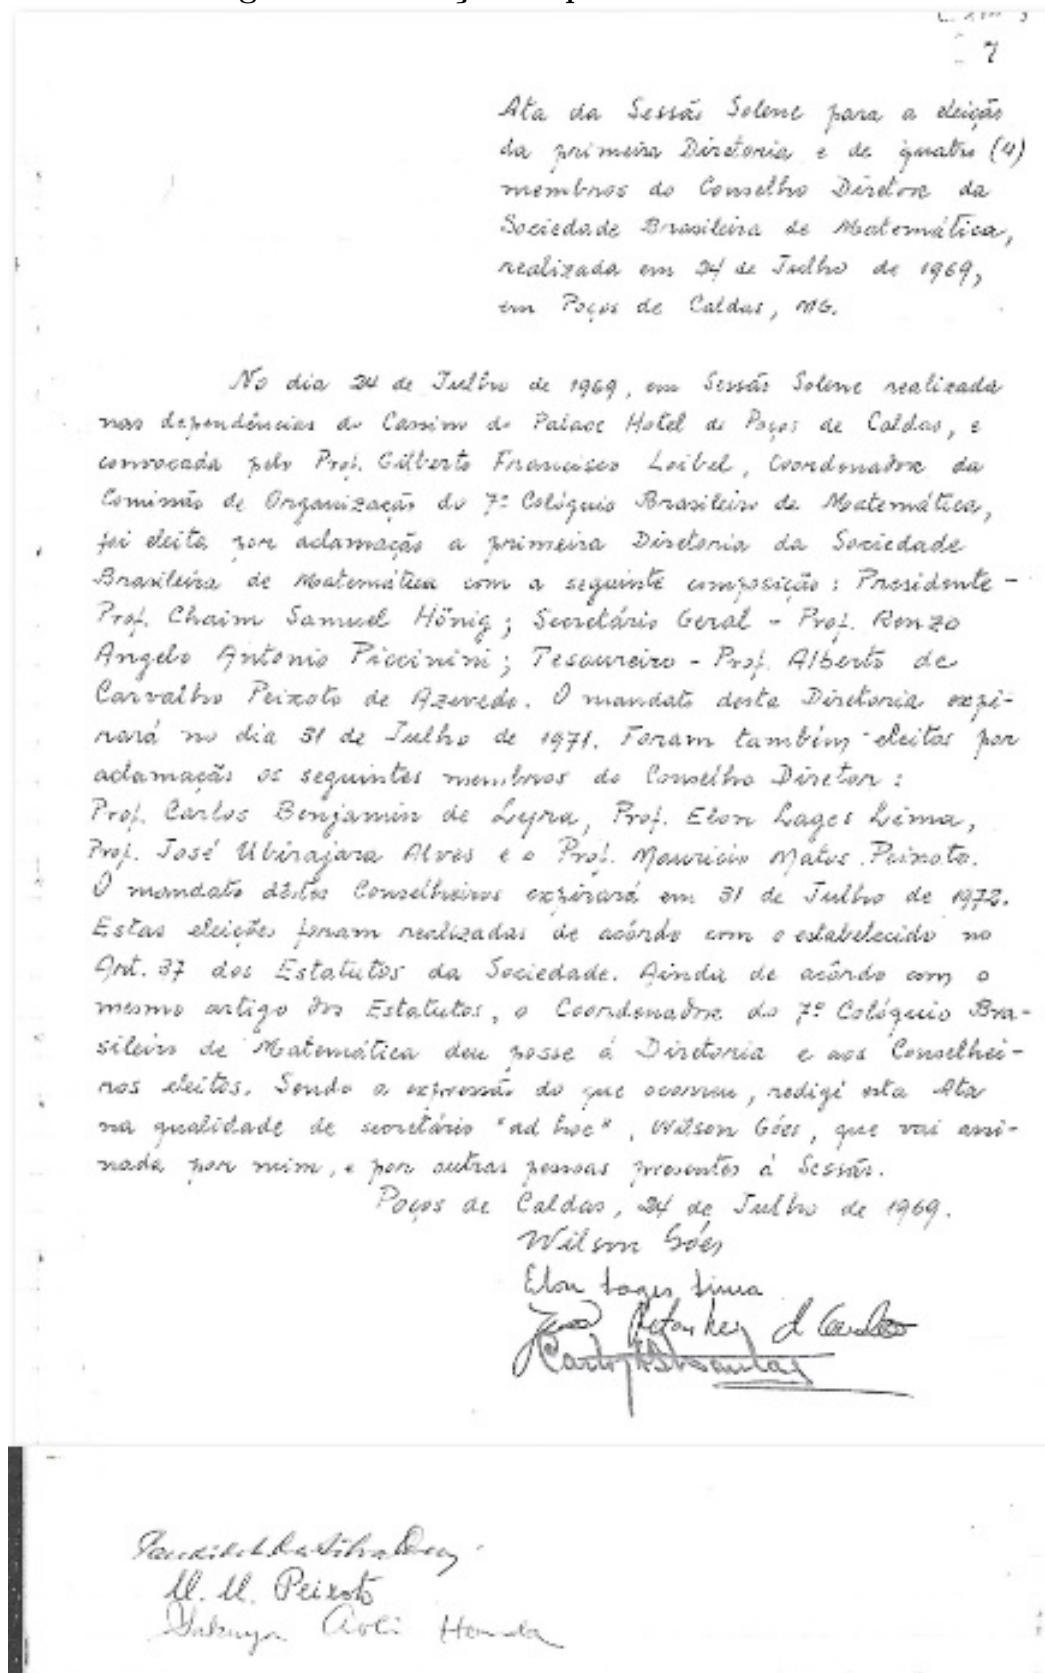 7
Ata da Sessão Solene para a eleição
da primeira Diretoria e de quatro (4)
membros do Conselho Diretor da
Sociedade Brasileira de Matemática,
realizada em 24 de Julho de 1969,
em Poços de Caldas, MG.
No dia 24 de Julho de 1969, em Sessão Solene realizada
nas dependências do Cassino do Palace Hotel de Poços de Caldas, e
convocada pelo Prof. Gilberto Francisco Loibel, Coordenador da
Comissão de Organização do 7º Colóquio Brasileiro de Matemática,
foi eleita por aclamação a primeira Diretoria da Sociedade
Brasileira de Matemática com a seguinte composição: Presidente -
Prof. Chaim Samuel Hönig; Secretário Geral - Prof. Renzo
Angelo Antonio Piccinini; Tesoureiro - Prof. Alberto de
Carvalho Peixoto de Azevedo. O mandato desta Diretoria expi-
rará no dia 31 de Julho de 1971. Foram também eleitos por
aclamação os seguintes membros do Conselho Diretor:
Prof. Carlos Benjamin de Lyra, Prof. Elon Lages Lima,
Prof. José Ubirajara Alves e o Prof. Mauricio Matos Peixoto.
O mandato dêstes Conselheiros expirará em 31 de Julho de 1973.
Estas eleições foram realizadas de acôrdo com o estabelecido no
Art. 37 dos Estatutos da Sociedade. Ainda de acôrdo com o
mesmo artigo dos Estatutos, o Coordenador do 7º Colóquio Bra-
sileiro de Matemática deu posse á Diretoria e aos Conselhei-
ros eleitos. Sendo a expressão do que ocorreu, redigi esta Ata
na qualidade de secretário "ad hoc", Wilson Góes, que vai assi-
nada por mim, e por outras pessoas presentes á Sessão.
Poços de Caldas, 24 de Julho de 1969.
Wilson Góes
Elon Lages Lima
da Silva
M. M. Peixoto
Honda